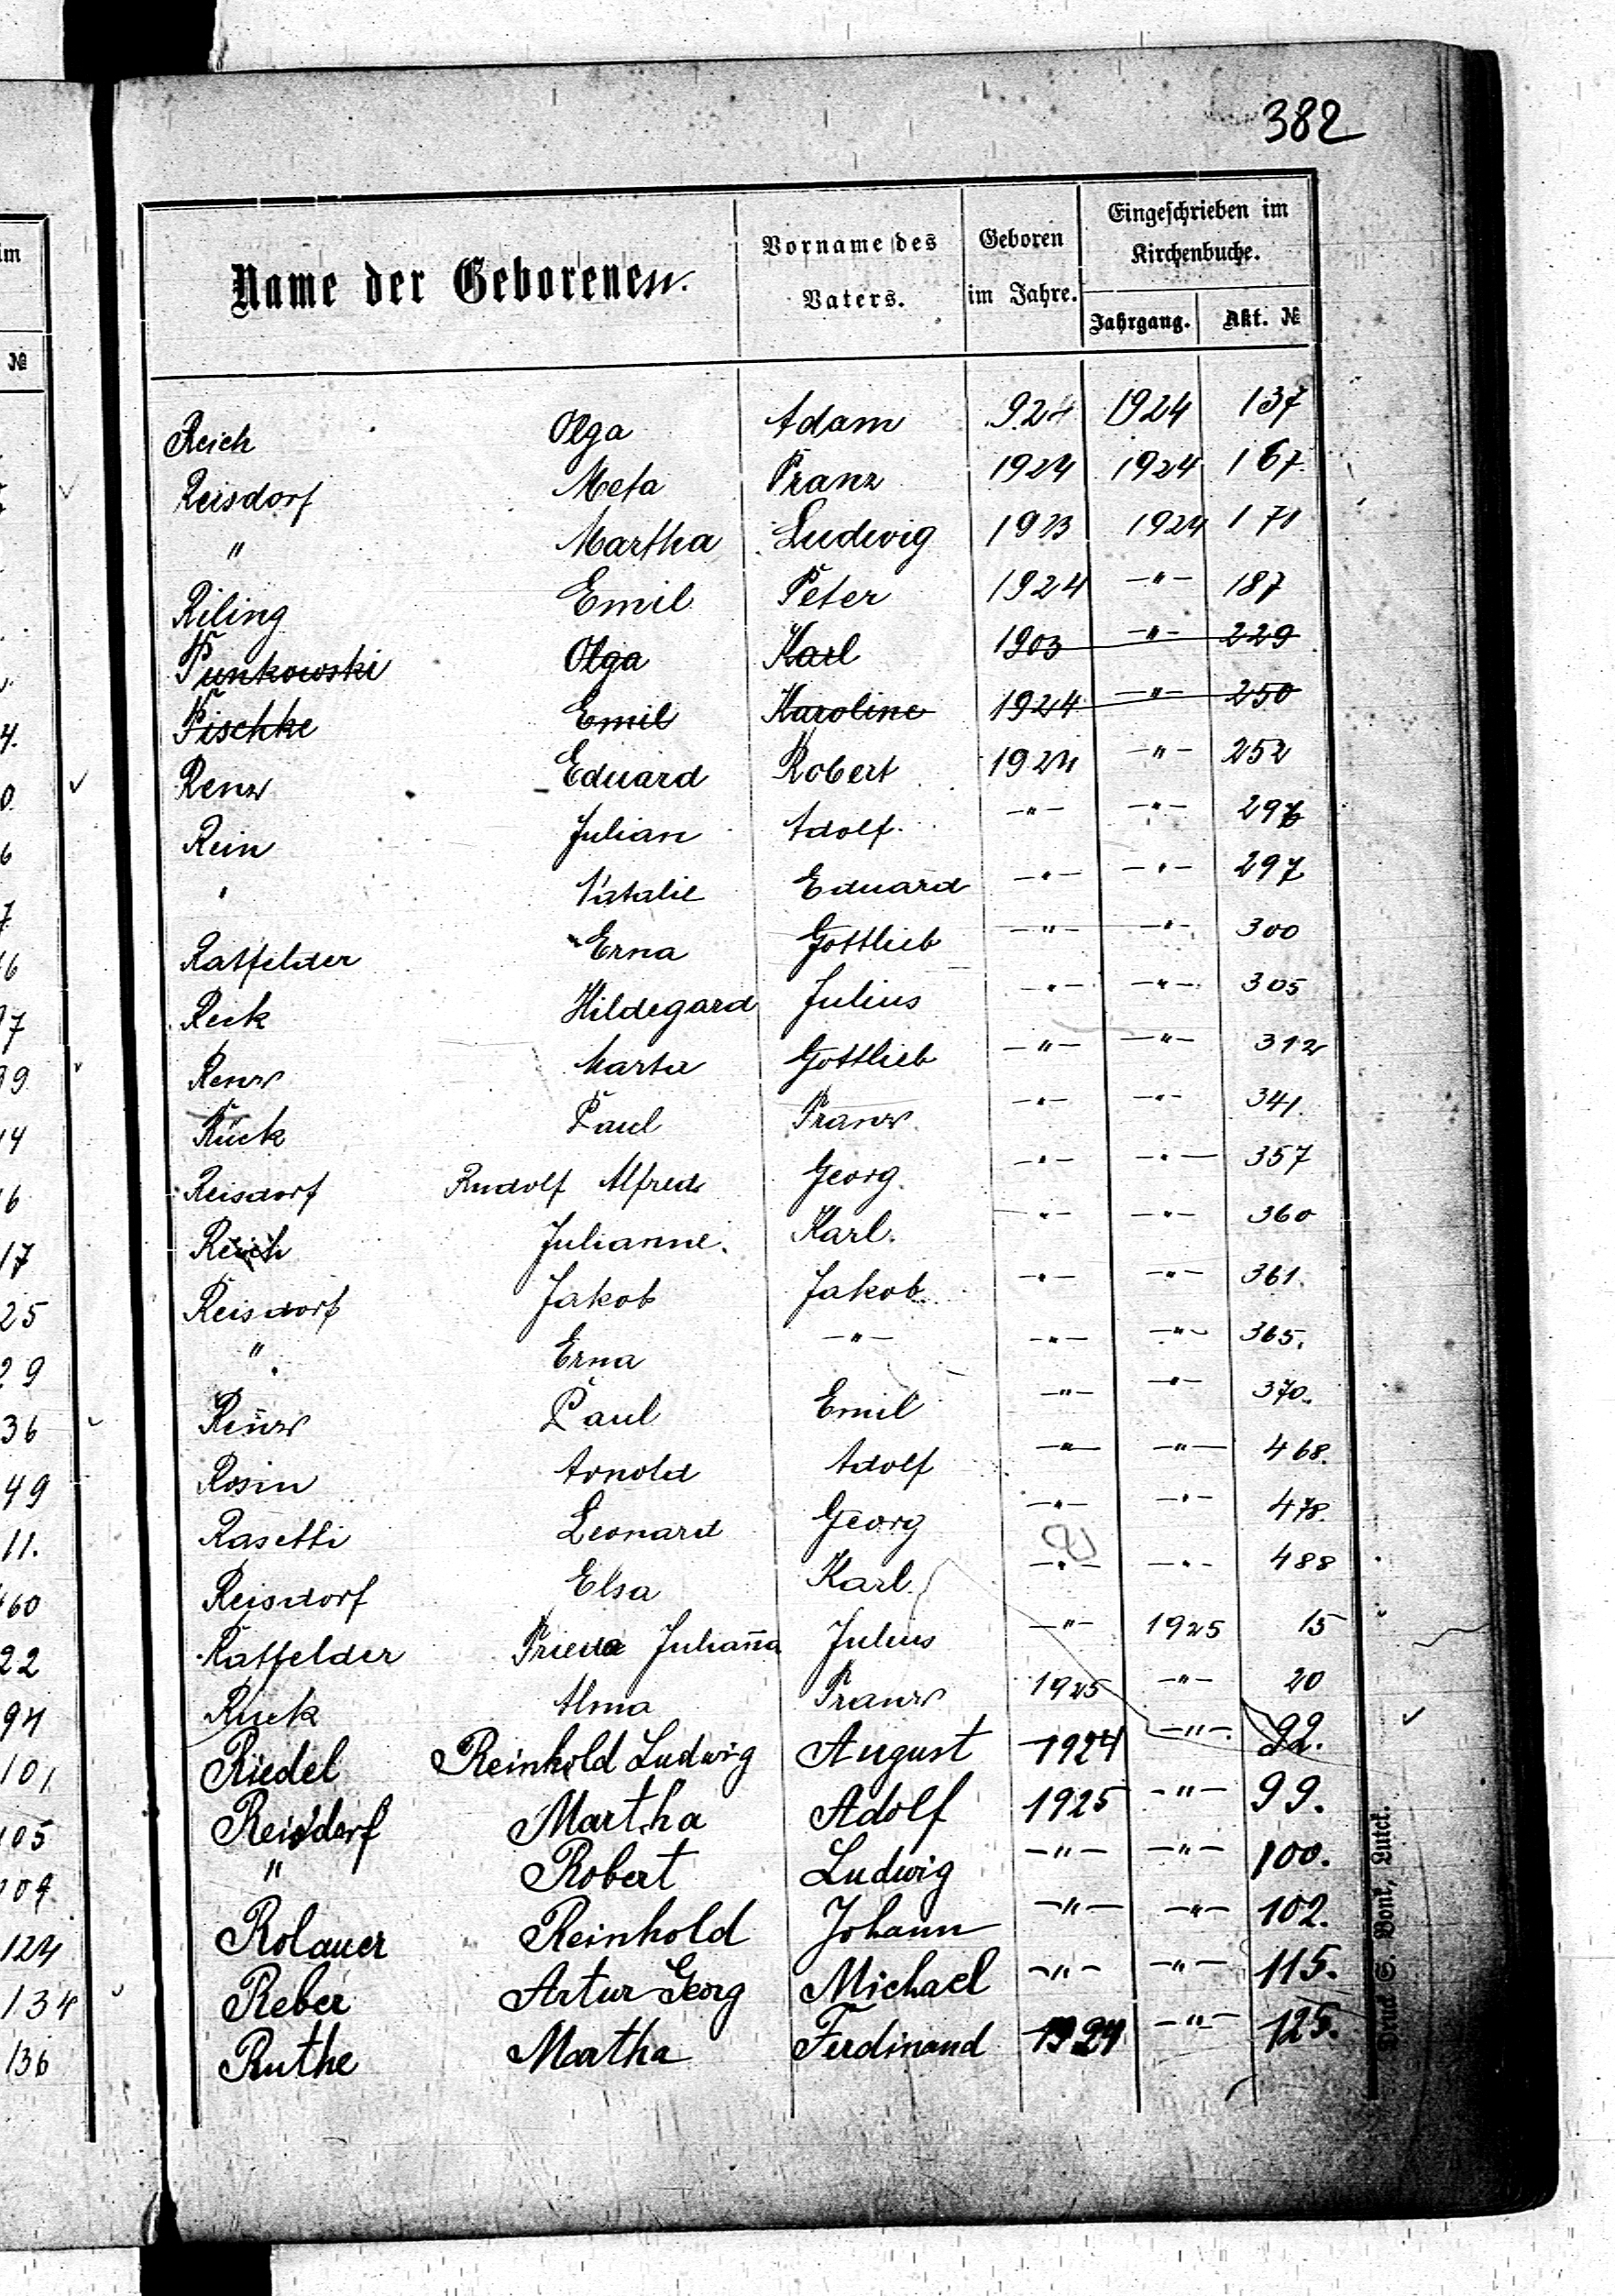 382
Name der Geborenen.
Vorname des Vaters.
Geboren im Jahre.
Eingeschrieben im Kirchenbuche.
Jahrgang. Akt. №
Reich Olga Adam 924 1924 137
Reisdorf Meta Franz 1924 1924 167
" Martha Ludwig 1923 1924 170
Riling Emil Peter 1924 -"- 187
Punkowski Olga Karl 1903 -"- 229
Pischke Emil Karoline 1924 -"- 250
Renz Eduard Robert 1924 -"- 252
Rein Julian Adolf. -"- -"- 296
" Natalie Eduard -"- -"- 297
Ratfelder Erna Gottlieb -"- -"- 300
Reck Hildegard Julius -"- -"- 305
Renz Marta Gottlieb -"- -"- 312
Rück Paul Franz. -"- -"- 341.
Reisdorf Rudolf Alfred Georg. -"- -"- 357
Reich Julianne. Karl. -"- -"- 360
Reisdorf Jakob Jakob -"- -"- 361.
" Erna -"- -"- -"- 365.
Renz Paul Emil -"- -"- 370.
Rosin Arnold Adolf -"- -"- 468.
Rasetti Leonard Georg -"- -"- 478.
Reisdorf Elsa Karl. -"- -"- 488
Ratfelder Frieda Julian̄a Julius -"- 1925 15
Ruck Alma Franz 1925 -"- 20
Riedel Reinhold Ludwig August 1924 -"- 92.
Reisdorf Martha Adolf 1925 -"- 99.
" Robert Ludwig -"- -"- 100.
Rolauer Reinhold Johann -"- -"- 102.
Reber Artur Georg Michael -"- -"- 115.
Ruthe Martha Ferdinand 1924 -"- 125.
Druck S. Bont, Luck.
im
№
4.
0.
6
7
16
97
99
14
16
17
25
29
36
49
11.
160
22
94
101
105
109
124
134
136